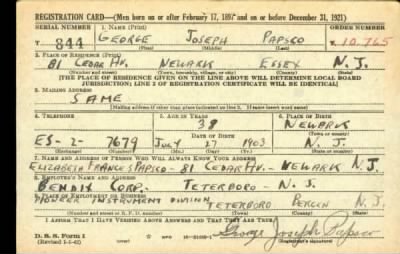 REGISTRATION CARD—(Men born on or after February 17, 1897 and on or before December 31, 1921)
SERIAL NUMBER 1. NAME (Print) ORDER NUMBER
T 844 GEORGE JOSEPH PAPSCO 10,765
(First) (Middle) (Last)
2. PLACE OF RESIDENCE (Print)
81 CEDAR AV. NEWARK ESSEX N. J.
(Number and street) (Town, township, village, or city) (County) (State)
[THE PLACE OF RESIDENCE GIVEN ON THE LINE ABOVE WILL DETERMINE LOCAL BOARD
JURISDICTION; LINE 2 OF REGISTRATION CERTIFICATE WILL BE IDENTICAL]
3. MAILING ADDRESS
SAME
[Mailing address if other than place indicated on line 2. If same insert word same]
4. TELEPHONE 5. AGE IN YEARS 6. PLACE OF BIRTH
38 NEWARK
DATE OF BIRTH (Town or county)
ES-2-7679 JULY 27 1903 N. J.
(Exchange) (Number) (Mo.) (Day) (Yr.) (State or country)
7. NAME AND ADDRESS OF PERSON WHO WILL ALWAYS KNOW YOUR ADDRESS
ELIZABETH FRANCES PAPSCO - 81 CEDAR AV. - NEWARK N. J.
8. EMPLOYER'S NAME AND ADDRESS
BENDIX CORP. TETERBORO - N. J.
9. PLACE OF EMPLOYMENT OR BUSINESS
PIONEER INSTRUMENT DIVISION TETERBORO BERGEN N. J.
(Number and street or R. F. D. number) (Town) (County) (State)
I AFFIRM THAT I HAVE VERIFIED ABOVE ANSWERS AND THAT THEY ARE TRUE.
D. S. S. Form 1
(Revised 1-1-42) George Joseph Papsco